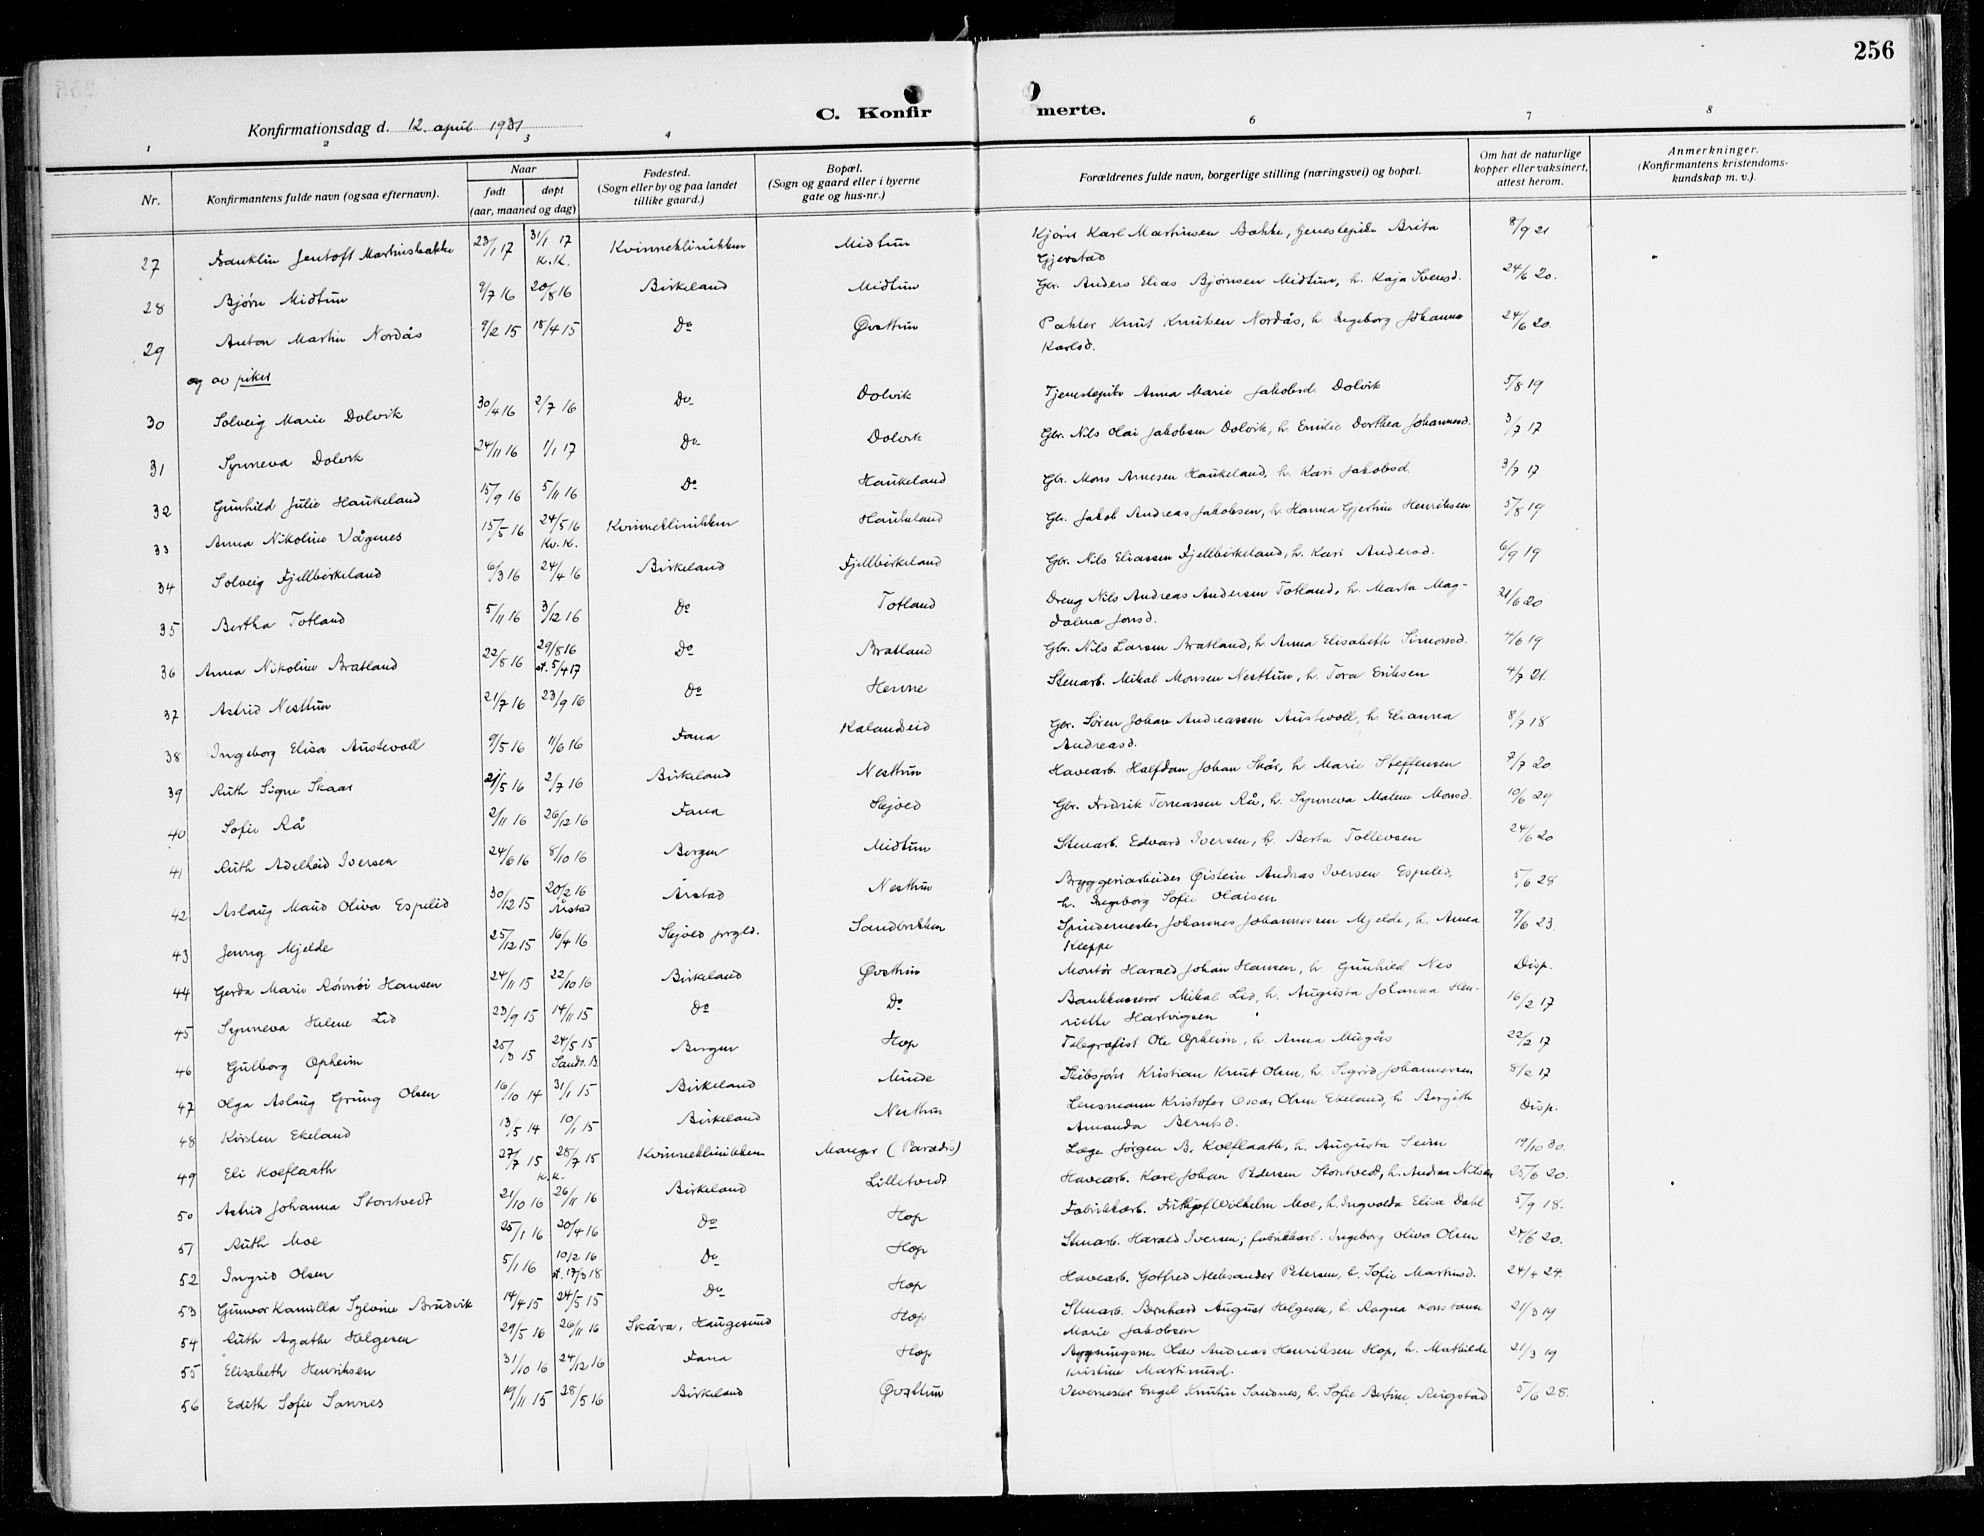 256
C. Konfirmerte.
Konfirmationsdag d. 12. april 1931
1 2 3 4 6 7 8
Nr. Konfirmantens fulde navn (ogsaa efternavn). Naar født døpt (aar, maaned og dag) Fødested. (Sogn eller by og paa landet tillike gaard.) Bopæl. (Sogn og gaard eller i byerne gate og hus-nr.) Forældrenes fulde navn, borgerlige stilling (næringsvei) og bopæl. Om hat de naturlige kopper eller vaksinert, attest herom. Anmerkninger. (Konfirmantens kristendoms-kundskap m. v.).
27 Franklin Jentoft Martinsbakke 23/1 17 31/1 17 K.K. Kvinneklinikken Midtun Kjører Karl Martinsen Bakke, tjenestepike Brita Gjerstad 8/9 21
28 Bjørn Midtun 9/7 16 20/8 16 Birkeland Midtun Gbr. Anders Elias Bjørnsen Midtun, h. Kaja Svensd. 24/6 20.
29 Anton Martin Nordås 9/2 15 18/4 15 Do Øvsttun Pakter Knut Knutsen Nordås, h. Ingeborg Johanne Karlsd. 24/6 20
og av piker
30 Solveig Marie Dolvik 30/4 16 2/7 16 Do Dolvik Tjenestepike Anna Marie Jakobsd. Dolvik 5/8 19
31 Synneva Dolvik 24/11 16 1/1 17 Do Dolvik Gbr. Nils Olai Jakobsen Dolvik, h. Emilie Dorthea Johannesd. 3/7 17
32 Gunhild Julie Haukeland 15/9 16 5/11 16 Do Haukeland Gbr. Mons Arnesen Haukeland, h. Kari Jakobsd. 3/7 17
33 Anna Nikoline Vågenes 15/5 16 24/5 16 Kv. K. Kvinneklinikken Haukeland Gbr. Jakob Andreas Jakobsen, h. Hanna Gjertine Henriksen 5/8 19
34 Solveig Fjellbirkeland 6/3 16 24/4 16 Birkeland Fjellbirkeland Gbr. Nils Eliassen Fjellbirkeland, h. Kari Andersd. 6/9 19
35 Bertha Totland 5/11 16 3/12 16 Do Totland Dreng Nils Andreas Andersen Totland, h. Marta Magdalena Jonsd. 21/6 20
36 Anna Nikoline Bratland 22/8 16 29/8 16 st. 5/4 17 Do Bratland Gbr. Nils Larsen Bratland, h. Anna Elisabeth Simonsd. 4/6 19
37 Astrid Nesttun 21/7 16 23/9 16 Do Henne Stenarb. Mikal Monsen Nesttun, h. Tora Eriksen 4/7 21.
38 Ingeborg Elisa Austevoll 9/5 16 11/6 16 Fana Kalandseid Gbr. Søren Johan Andreassen Austevoll, h. Elianna Andreasd. 8/7 18
39 Ruth Signe Skaar 21/5 16 2/7 16 Birkeland Nesttun Havearb. Halfdan Johan Skår, h. Marie Steffensen 7/7 20
40 Sofie Rå 2/11 16 26/12 16 Fana Skjold Gbr. Fredrik Tomassen Rå, h. Synneva Malene Monsd. 10/6 29
41 Ruth Adelheid Iversen 24/6 16 8/10 16 Bergen Midtun Stenarb. Edvard Iversen, h. Berta Tollevsen 24/6 20
42 Aslaug Maud Oliva Espelid 30/12 15 20/2 16 Årstad Årstad Nesttun Bryggeriarbeider Øistein Andreas Iversen Espelid, h. Ingeborg Sofie Olaisen 5/6 28
43 Jenny Mjelde 25/12 15 16/4 16 Skjold prgld. Sandbrekken Spindemester Johannes Johannessen Mjelde, h. Anna Kleppe 9/6 23.
44 Gerda Marie Rønnøi Hansen 24/11 15 22/10 16 Birkeland Øvsttun Montør Harald Johan Hansen, h. Gunhild Nes Disp.
45 Synneva Helene Lid 23/9 15 14/11 15 Do Do Bankkasserer Mikal Lid, h. Augusta Johanna Henriette Hartvigsen 16/2 17
46 Gulborg Opheim 25/3 15 24/5 15 Sandv. B. Bergen Hop Telegrafist Ole Opheim, h. Anna Mugås 22/2 17
47 Olga Aslaug Grung Olsen 16/10 14 31/1 15 Birkeland Minde Skibsfører Kristian Knut Olsen, h. Sigrid Johannessen 8/2 17
48 Kirsten Ekeland 13/5 14 10/1 15 Birkeland Nesttun Lensmann Kristofer Oscar Olsen Ekeland, h. Bergith Amanda Berntsd. Disp.
49 Eli Kolflaath 27/7 15 28/7 15 K.K. Kvinneklinikken Manger (Paradis) Læge Jørgen B. Kolflaath, h. Augusta Seim 19/10 30.
50 Astrid Johanna Storetvedt 21/10 16 26/11 16 Birkeland Lilletvedt Havearb. Karl Johan Pedersen Storetvedt, h. Andrea Nilsen 25/6 20.
51 Ruth Moe 25/1 16 20/4 16 Do Hop Fabrikkarb. Fritjof Wilhelm Moe, h. Ingvolda Elisa Dahl 5/9 18.
52 Ingrid Olsen 5/1 16 10/2 16 st. 17/3 18 Do Hop Stenarb. Harald Iversen; fabrikkarb. Ingeborg Oliva Olsen 24/6 20.
53 Gunvor Kamilla Sylvine Brudvik 14/4 15 24/5 15 Do Hop Havearb. Gotfred Aleksander Petersen, h. Sofie Martinsd. 24/4 24.
54 Ruth Agathe Helgesen 29/5 16 26/11 16 Skåre, Haugesund Hop Stenarb. Bernhard August Helgesen, h. Ragna Konstanse Marie Jakobsen 21/3 19
55 Elisabeth Henriksen 31/10 16 24/12 16 Fana Hop Bygningsm. Lars Andreas Henriksen Hop, h. Mathilde Kristine Martinusd. 21/3 19
56 Edith Sofie Sannes 19/11 15 28/5 16 Birkeland Øvsttun Vevemester Engel Knutsen Sandnes, h. Sofie Bertine Reigstad 5/6 28.